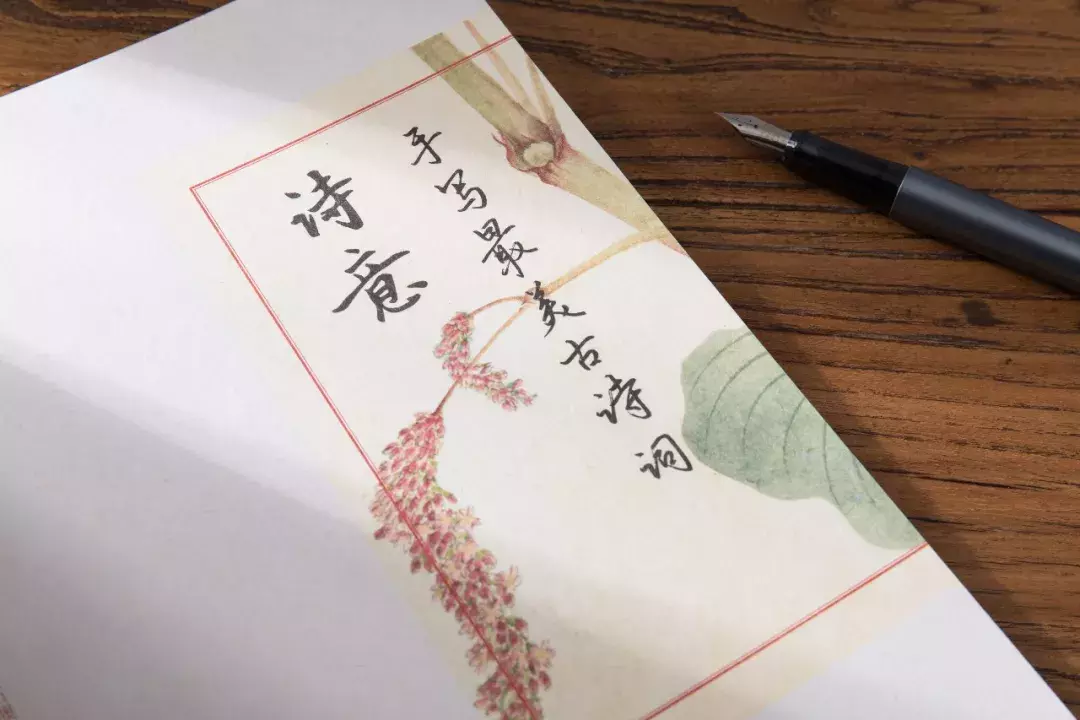 手写最美古诗词
诗意